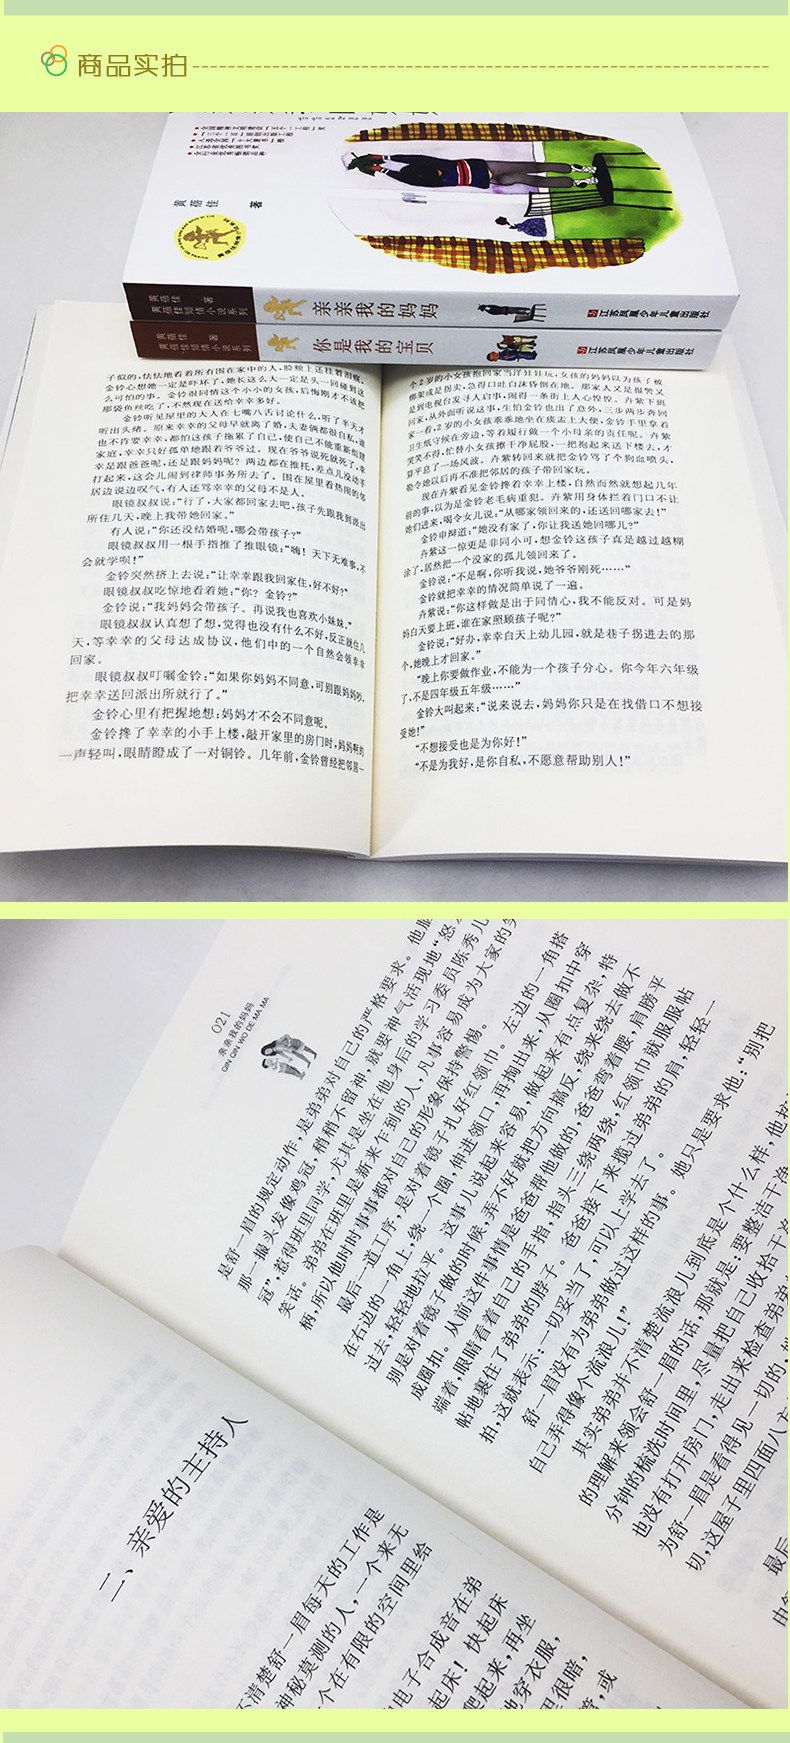 商品实拍
qin qin wo de ma ma
黄蓓佳 著
黄蓓佳 著
黄蓓佳倾情小说系列
亲亲我的妈妈
江苏凤凰少年儿童出版社
黄蓓佳 著
黄蓓佳倾情小说系列
你是我的宝贝
江苏凤凰少年儿童出版社
子似的，怯怯地看着所有围在家中的人，脸颊上还挂着泪痕。
金铃心想她一定是吓坏了，她长这么大一定是头一回碰到这
么可怕的事。金铃很同情这个小小的女孩，后悔刚才不该把
那袋鱼丝吃了，不然现在送给幸幸多好。
金铃听见屋里的大人在七嘴八舌讨论什么，听了半天才
听出头绪。原来幸幸的父母早就离了婚，夫妻俩都很自私，谁
也不肯要幸幸，都怕这孩子拖累了自己，使自己不能重新组建
家庭，幸幸只好孤单地跟着爷爷过。现在爷爷说死就死了，幸
幸是跟爸爸呢，还是跟妈妈呢？两边都在推托，差点儿没动手
打起来，这会儿闹到律师事务所去了。围在屋里看热闹的邻
居边说边叹气，有人还骂幸幸的父母不是人。
眼镜叔叔说：“行了，大家都回家去吧，孩子先跟我到派出
所住几天，晚上我带她回家。”
有人说：“你还没结婚呢，哪会带孩子？”
眼镜叔叔用一根手指推了推眼镜：“嗨！天下无难事，不
会就学呗！”
金铃突然挤上去说：“让幸幸跟我回家住，好不好？”
眼镜叔叔吃惊地看着她：“你？金铃？”
金铃说：“我妈妈会带孩子。再说我也喜欢小妹妹。”
眼镜叔叔认真想了想，觉得也没有什么不好，反正就住几
天，等幸幸的父母达成协议，他们中的一个自然会领幸幸
回家。
眼镜叔叔叮嘱金铃：“如果你妈妈不同意，可别跟妈妈吵，
把幸幸送回派出所就行了。”
金铃心里有把握地想：妈妈才不会不同意呢。
金铃搀了幸幸的小手上楼，敲开家里的房门时，妈妈啊的
一声轻叫，眼睛瞪成了一对铜铃。几年前，金铃曾经把邻居一
个2岁的小女孩抱回家当洋娃娃玩，女孩的妈妈以为孩子被
绑架或是拐卖，急得口吐白沫昏倒在地。那家人又是报警又
是到电视台发寻人启事，闹得一条街上人心惶惶。卉紫下班
回家，从外面听说这事，生怕金铃也出了意外，三步两步奔回
家一看，2岁的小女孩乖乖地坐在痰盂上大便，金铃手里拿着
卫生纸守候在旁边，等着履行做一个小母亲的责任呢。卉紫
哭笑不得，忙替小女孩擦干净屁股，一把抱起来送下楼去，才
算平息了一场风波。卉紫转回来就把金铃骂了个狗血喷头，
勒令她以后再不准把邻居的孩子带回家玩。
现在卉紫看见金铃搀着幸幸上楼，自然而然就想起几年
前的事，以为是金铃老毛病重犯。卉紫用身体拦着门口不让
她们进来，喝令女儿说：“从哪家领回来的，还送回哪家去！”
金铃申辩道：“她没有家了，你让我送她回哪儿？”
卉紫这一惊更是非同小可，想金铃这孩子真是越过越糊
涂了，居然把一个没家的孤儿领回来了。
金铃说：“不是啊，你听我说，她爷爷刚死……”
金铃就把幸幸的情况简单说了一遍。
卉紫说：“你这样做是出于同情心，我不能反对。可是妈
妈白天要上班，谁在家照顾孩子呢？”
金铃说：“好办，幸幸白天上幼儿园，就是巷子拐进去的那
个，她晚上才回家。”
“晚上你要做作业，不能为一个孩子分心。你今年六年级
了，不是四年级五年级……”
金铃大叫起来：“说来说去，妈妈你只是在找借口不想接
受她！”
“不想接受也是为你好！”
“不是为我好，是你自私，不愿意帮助别人！”
021
亲亲我的妈妈
QIN QIN WO DE MA MA
是舒一眉的规定动作，是弟弟对自己的严格要求。
那一撮头发像鸡冠，稍稍不留神，就要神气活现地“怒发
冠”，惹得班里同学，尤其是坐在他身后的学习委员陈秀儿
笑话。弟弟在班里是新来乍到的人，凡事容易成为大家的笑
柄，所以他时时事事都对自己的形象保持警惕。
最后一道工序，是对着镜子扎好红领巾。左边的一角搭
在右边的一角上，绕一个圈，伸进领口，再掏出来，从圈扣中穿
过去，轻轻地拉平。这事儿说起来容易，做起来有点复杂，特
别是对着镜子做的时候，弄不好就把方向搞反，绕来绕去做不
成圈扣。从前这件事情是爸爸帮他做的，爸爸弯着腰，肩膀平
端着，眼睛看着自己的手指，指头三绕两绕，红领巾就服服帖
帖地裹住了弟弟的脖子。爸爸接下来揽过弟弟的肩，轻轻一
拍，这就表示：一切妥当了，可以上学去了。
舒一眉没有为弟弟做过这样的事。她只是要求他：“别把
自己弄得像个流浪儿！”
其实弟弟并不清楚流浪儿到底是个什么样，他
的理解来领会舒一眉的话，那就是：要整洁干净
分钟的梳洗时间里，尽量把自己收拾干净
也没有打开房门，走出来检查弟弟
为舒一眉是看得见一切的，
切，这屋子里四面八方
最后
二、亲爱的主持人
不清楚舒一眉每天的工作是
神秘莫测的人，一个来无
个在有限的空间里给
电子合成音在弟
起床！快起床
爬起来，再坐
地穿衣服，
里很暗，
管，或